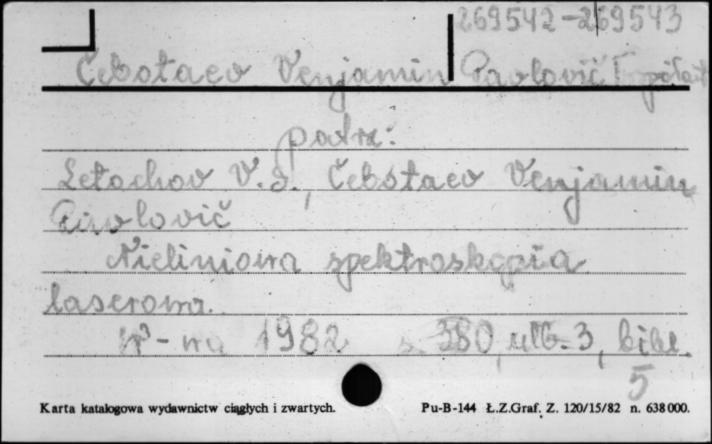 269542-269543
Čebotaev Venjamin Pavlovič
patrz:
Letochov V.S., Čebotaev Venjamin
Pavlovič
Nieliniowa spektroskopia
laserowa.
W-wa 1982 s. 380, nlb. 3, bibl.
5
Karta katalogowa wydawnictw ciągłych i zwartych. Pu-B-144 Ł.Z.Graf. Z. 120/15/82 n. 638000.